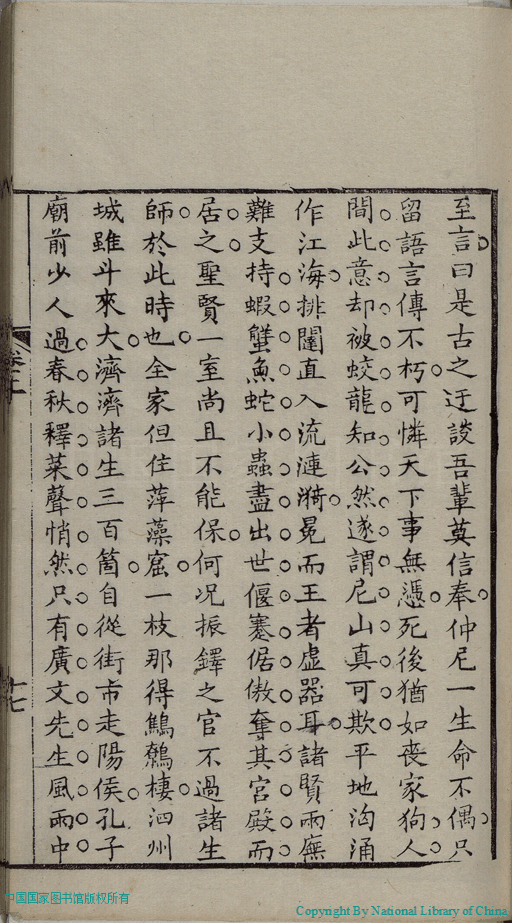 至言曰是古之迂談吾輩莫信奉仲尼一生命不偶只
留語言傳不朽可憐天下事無憑死後猶如喪家狗人
間此意却被蛟龍知公然遂謂尼山真可欺平地洶涌
作江海排闥直入流漣漪冕而王者虛器耳諸賢兩廡
難支持蝦蟹魚蛇小蟲盡出世偃蹇倨傲奪其宮殿而
居之聖賢一室尚且不能保何況振鐸之官不過諸生
師於此時也全家但住萍藻窟一枝那得鷦鷯棲泗州
城雖斗來大濟濟諸生三百箇自從街市走陽侯孔子
廟前少人過春秋釋菜聲悄然只有廣文先生風雨中
十七
中国国家图书馆版权所有
Copyright By National Library of China